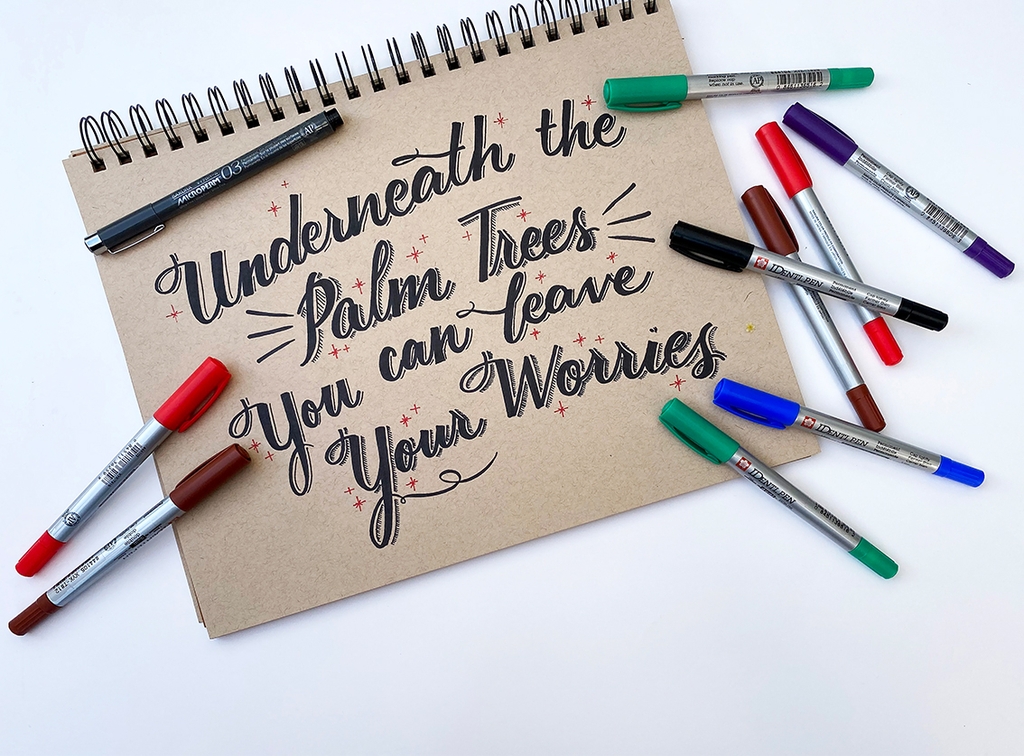 Underneath the
Palm Trees
You can leave
Your Worries
SAKURA
MICROPERM 03
AP
AP
AP
AP
IDENTI.PEN
IDENTI.PEN
IDENTI.PEN